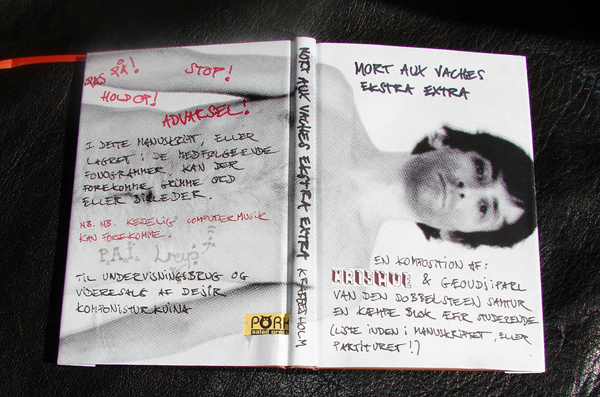 PAS PÅ!
STOP!
HOLD OP!
ADVARSEL!
I DETTE MANUSKRIPT, ELLER
LAGRET I DE MEDFØLGENDE
FONOGRAMMER, KAN DER
FOREKOMME GRIMME ORD
ELLER BILLEDER.
N.B. NB. KEDELIG COMPUTERMUSIK
KAN FOREKOMME.
TIL UNDERVISNINGSBRUG OG
VIDERESALG AF DEJÍR
KOMPONISTURKUINA
PORK
salad
MORT AUX VACHES EKSTRA EXTRA KRABBESHOLM
MORT AUX VACHES
EKSTRA EXTRA
EN KOMPOSITION AF:
& GÆOUDJIPARL
VAN DEN DOBBELSTEEN SAMTUR
EN KÆMPE BLOK ÆFIR STUDERENDE
(LISTE INDEN I MANUSKRIPTET, ELLER
PARTITURET!)